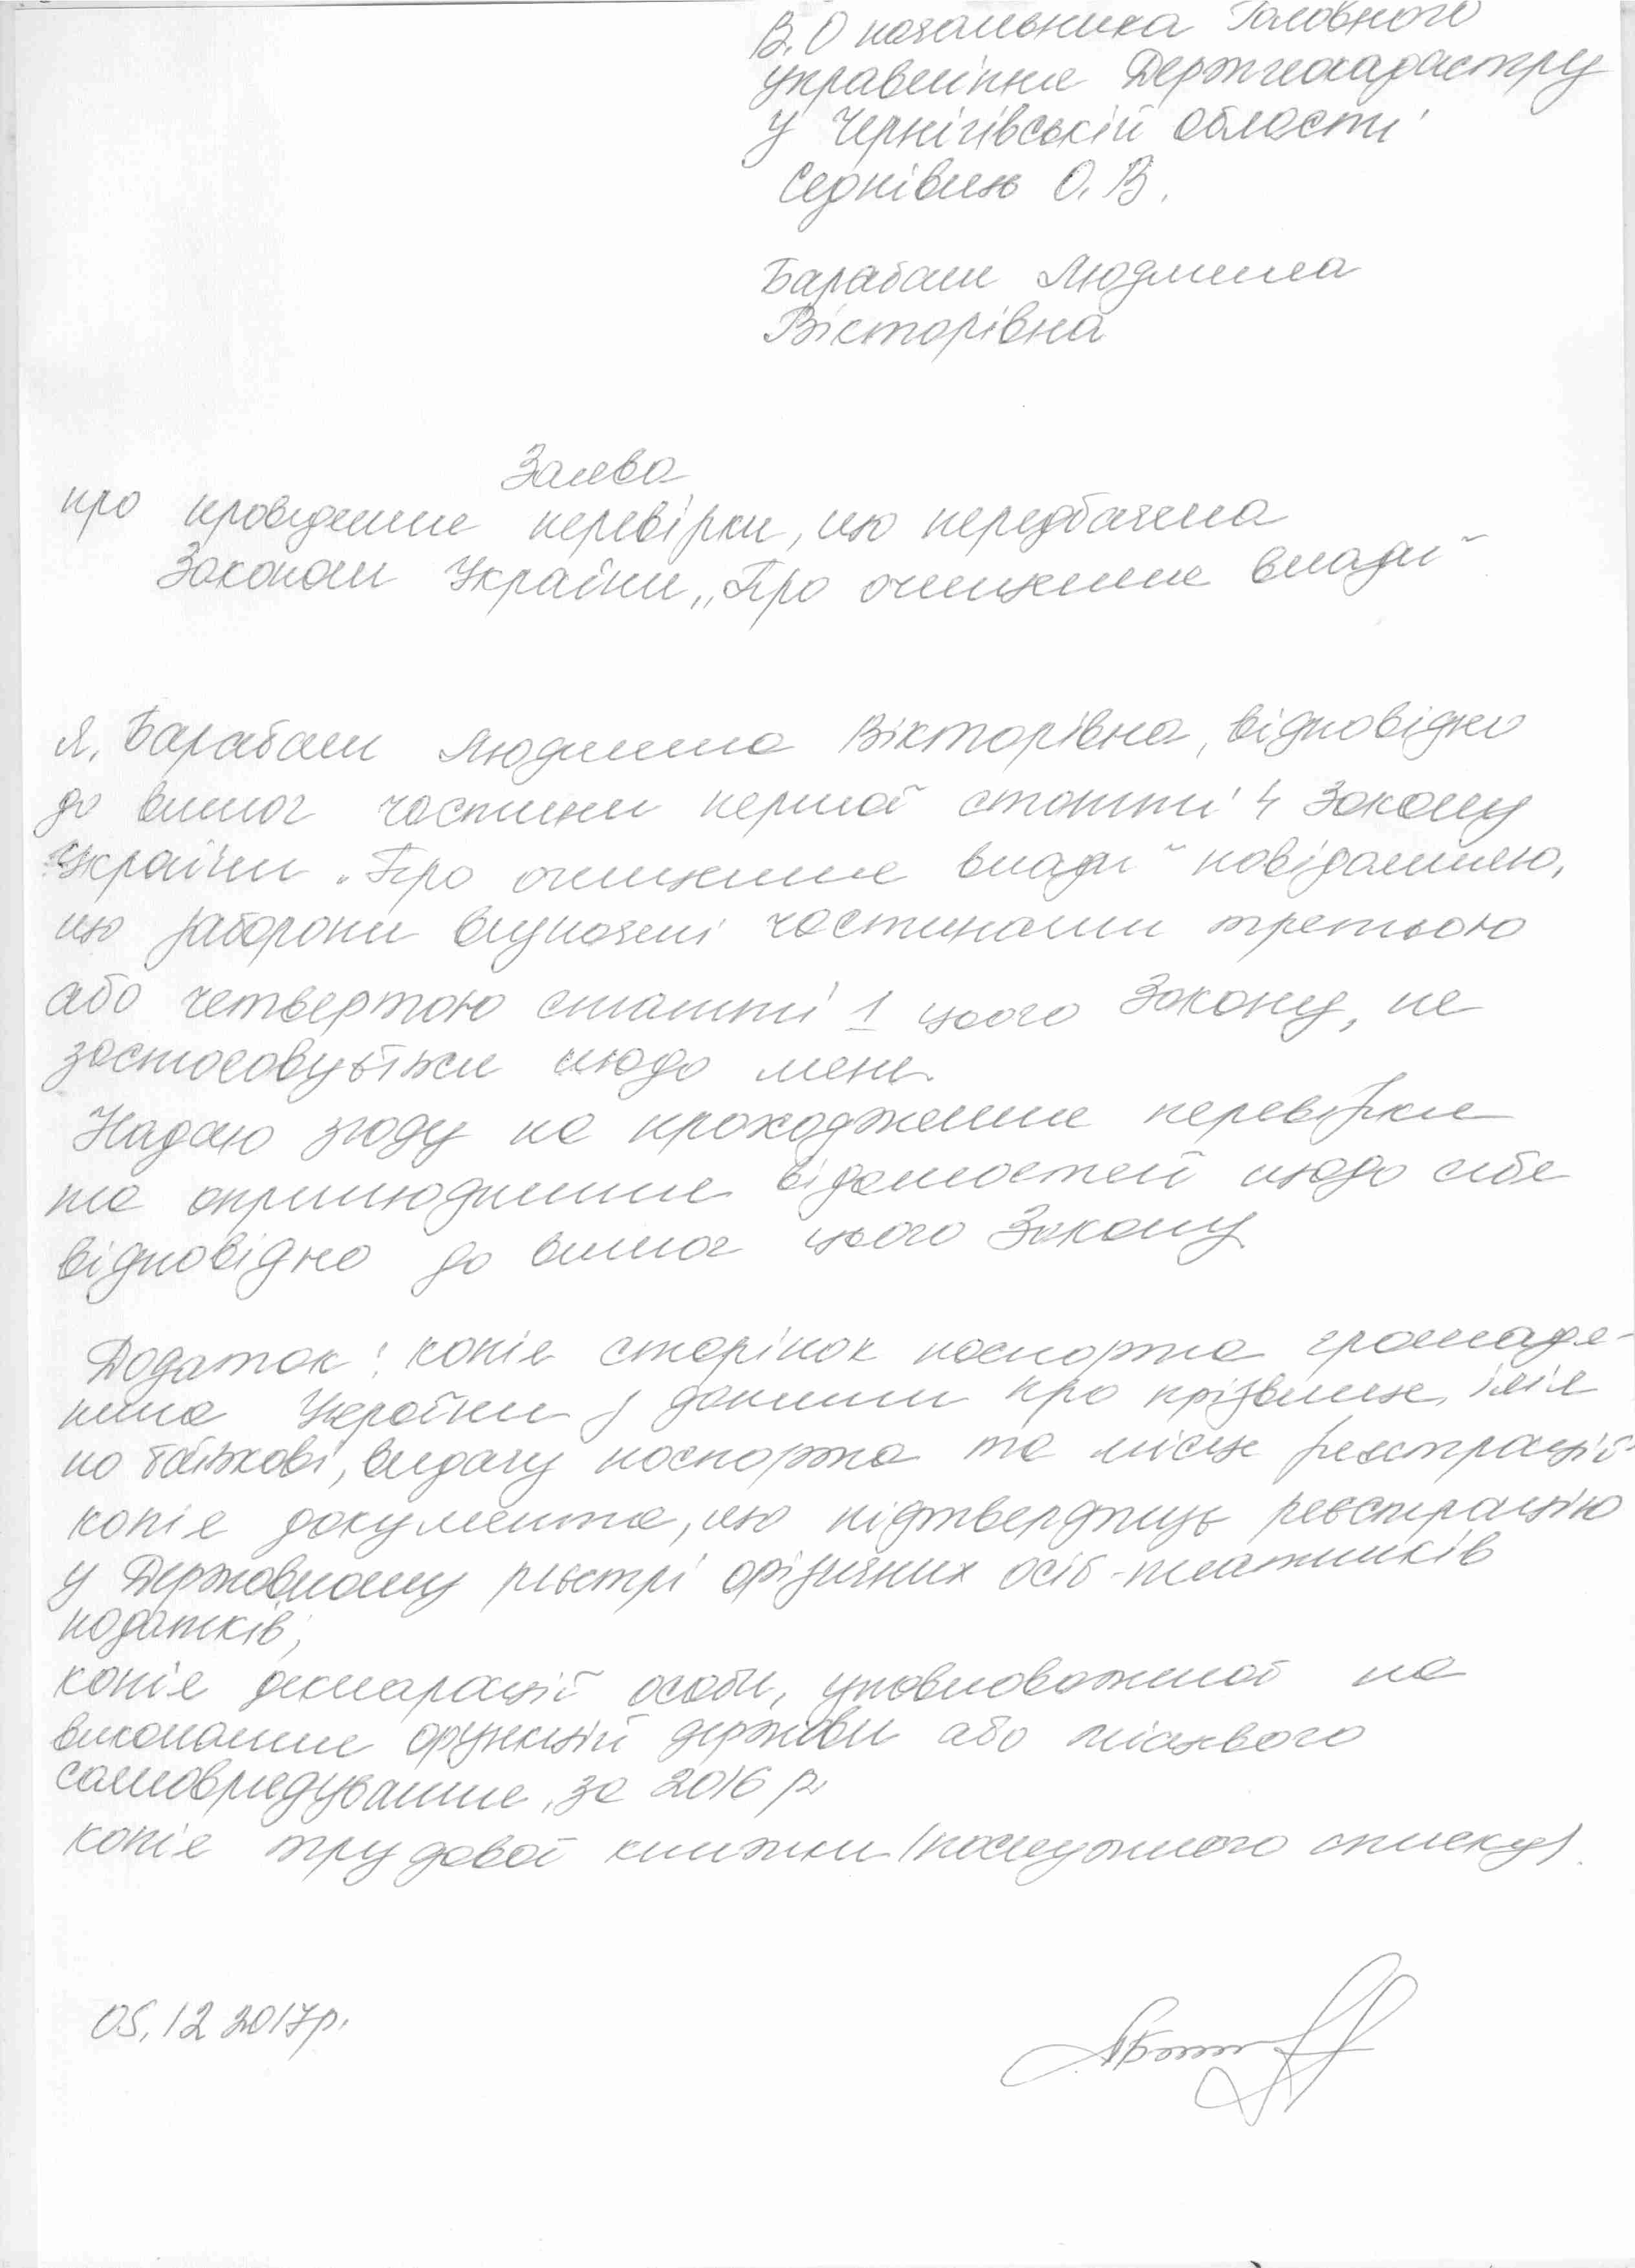 В.О начальника Головного
управління Держгеокадастру
у Чернігівській області
Седнівцю О.В.
Барабаш Людмила
Вікторівна
Заява
про проведення перевірки, що передбачена
Законом України „Про очищення влади"
Я, Барабаш Людмила Вікторівна, відповідно
до вимог частини першої статті 4 Закону
України „Про очищення влади" повідомляю,
що заборони визначені частинами третьою
або четвертою статті 1 цього Закону, не
застосовуються щодо мене.
Надаю згоду на проходження перевірки
та оприлюднення відомостей щодо себе
відповідно до вимог цього Закону
Додаток: копія сторінок паспорта громадя-
нина України з даними про прізвище, ім'я
по батькові, видачу паспорта та місце реєстрації
копія документа, що підтверджує реєстрацію
у Державному реєстрі фізичних осіб-платників
податків;
копія декларації особи, уповноваженої на
виконання функцій держави або місцевого
самоврядування, за 2016 р.
копія трудової книжки (послужного списку).
05.12 2017р.